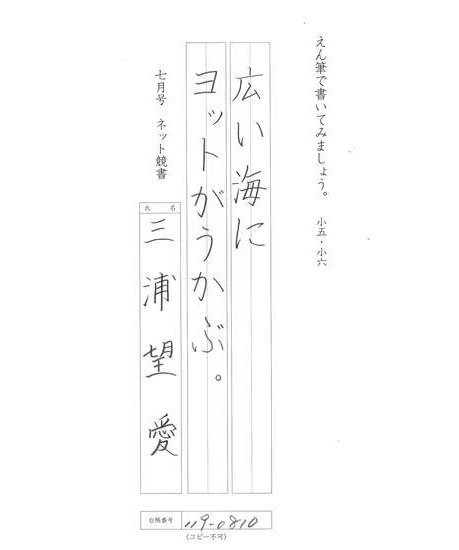 えん筆で書いてみましょう。 小五・小六
広い海に
ヨットがうかぶ。
七月号 ネット競書
氏名
三浦望愛
台帳番号 119-0810
(コピー不可)